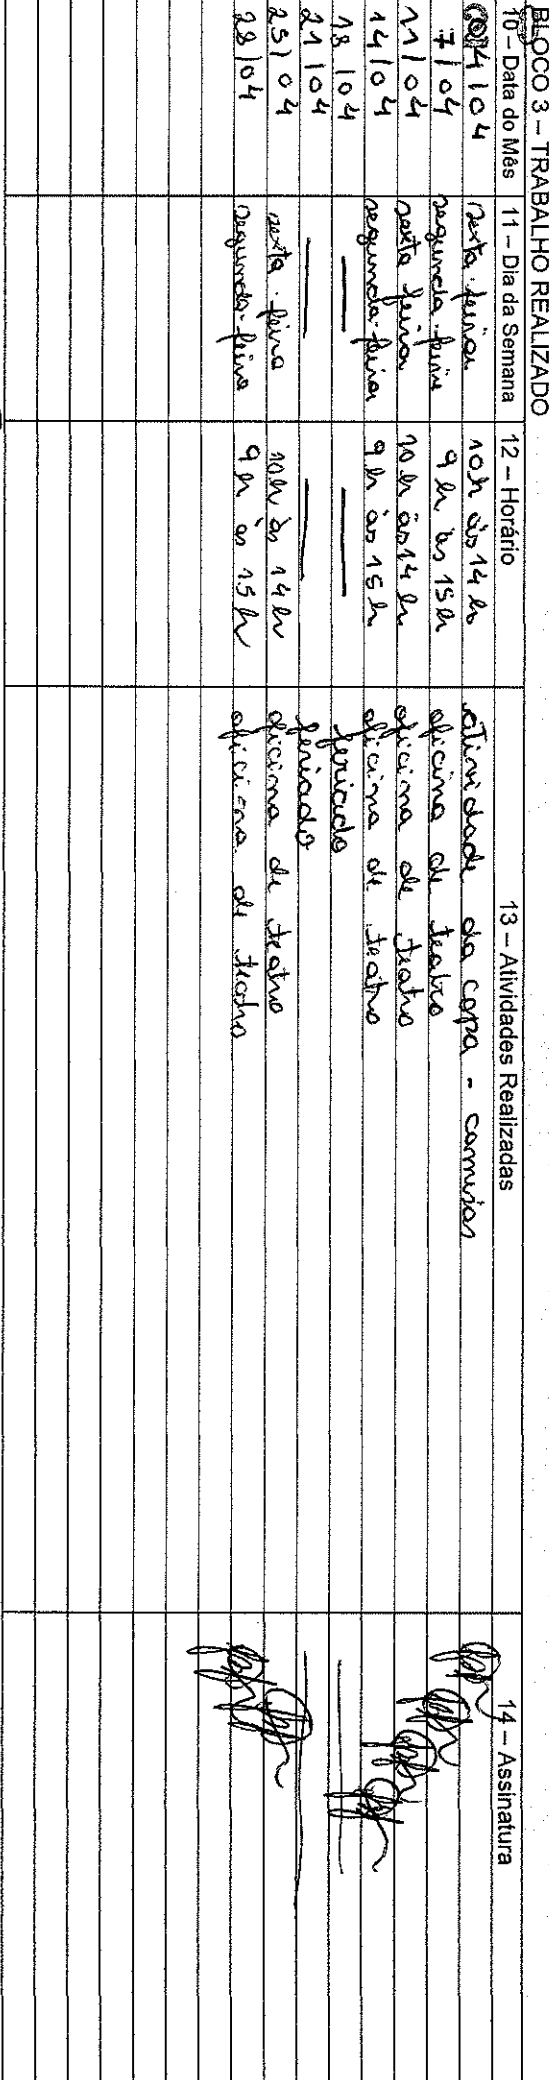 BLOCO 3 – TRABALHO REALIZADO
10 – Data do Mês 11 – Dia da Semana 12 – Horário 13 – Atividades Realizadas 14 – Assinatura
04/04 sexta-feira 10h às 14h atividade da copa - camisas
7/04 segunda-feira 9h às 15h oficina de teatro
11/04 sexta feira 10h às 14h oficina de teatro
14/04 segunda-feira 9h às 15h oficina de teatro
18/04 feriado
21/04 feriado
25/04 sexta-feira 10h às 14h oficina de teatro
28/04 segunda-feira 9h às 15h oficina de teatro